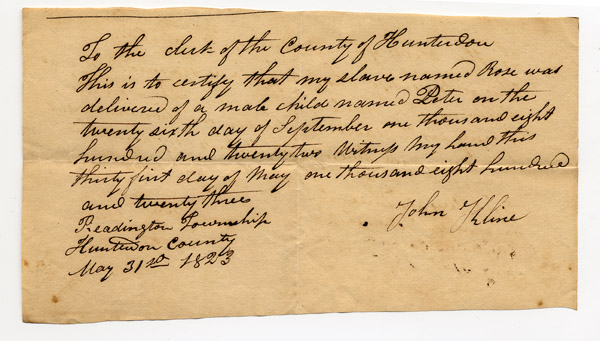 To the clerk of the County of Hunterdon
This is to certify that my slave named Rose was
delivered of a male child named Peter on the
twenty sixth day of September one thousand eight
hundred and twenty two Witness my hand this
thirty first day of May one thousand eight hundred
and twenty three
Readington Township
Hunterdon County
May 31st 1823
John Kline